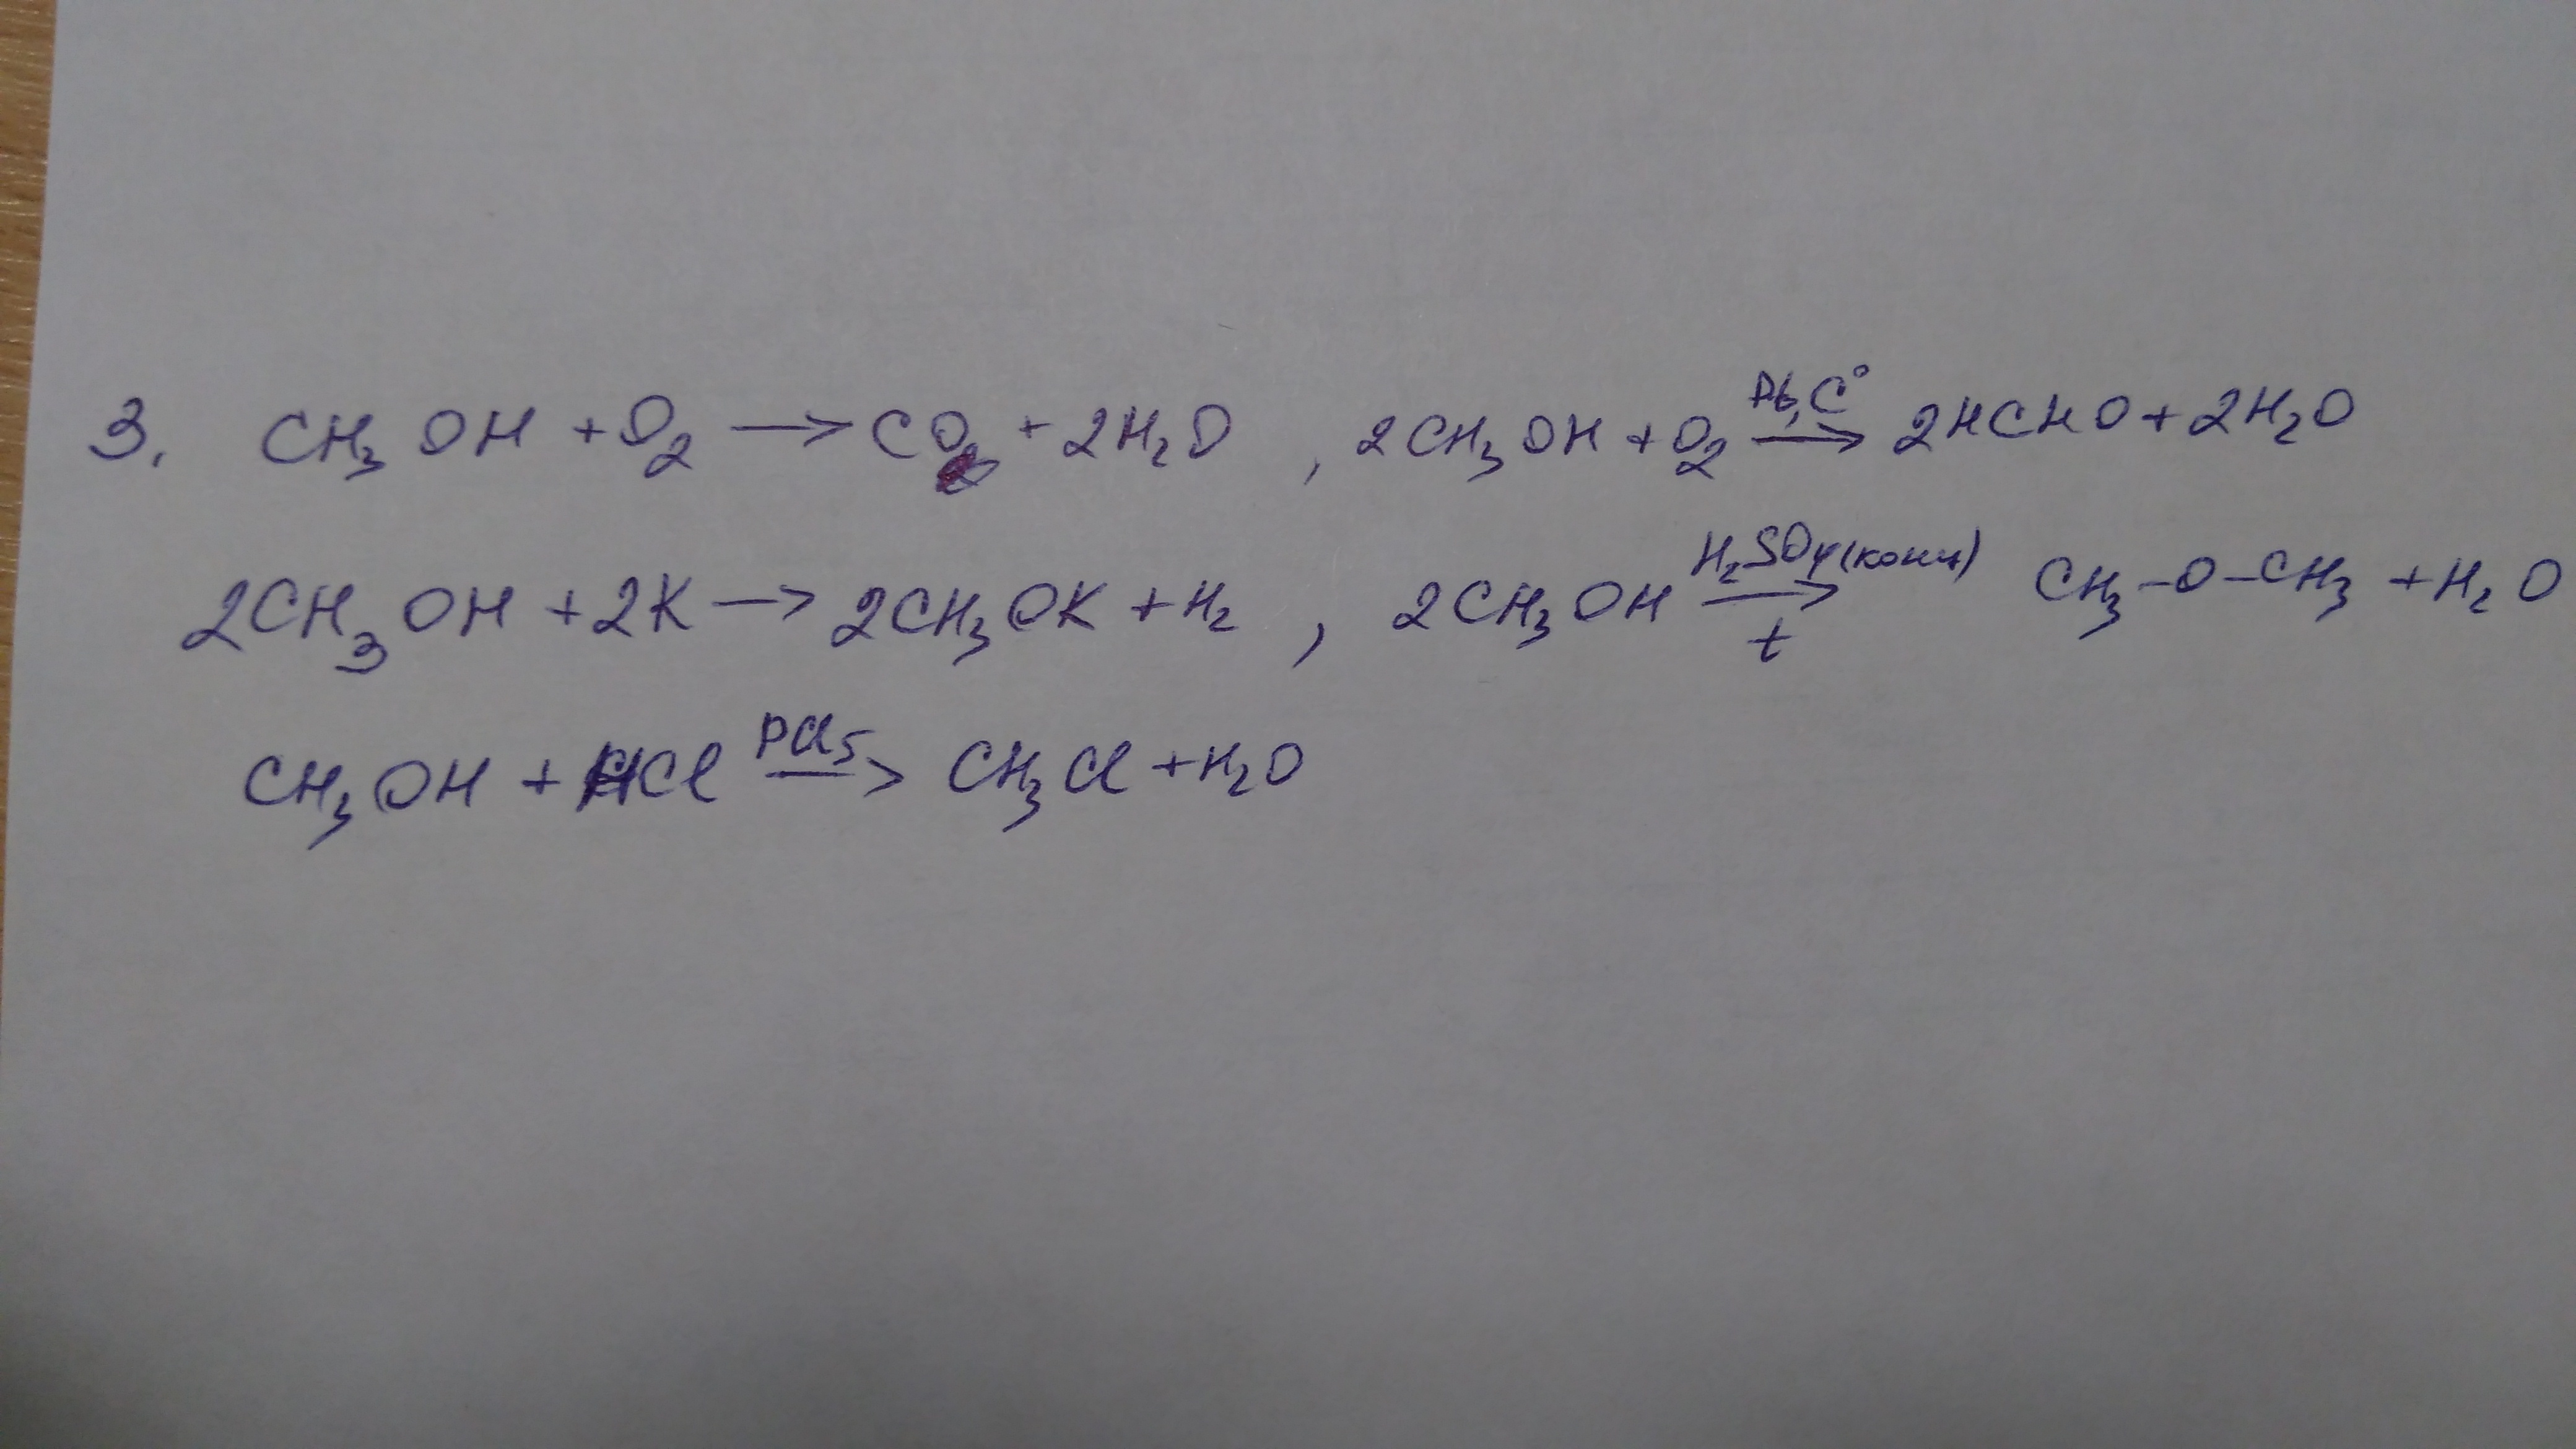 3. CH₃OH + O₂ → CO₂ + 2H₂O , 2CH₃OH + O₂ Pb, C° → 2HCHO + 2H₂O
2CH₃OH + 2K → 2CH₃OK + H₂ , 2CH₃OH H₂SO₄(конц) → t CH₃-O-CH₃ + H₂O
CH₃OH + HCl PCl₅ → CH₃Cl + H₂O